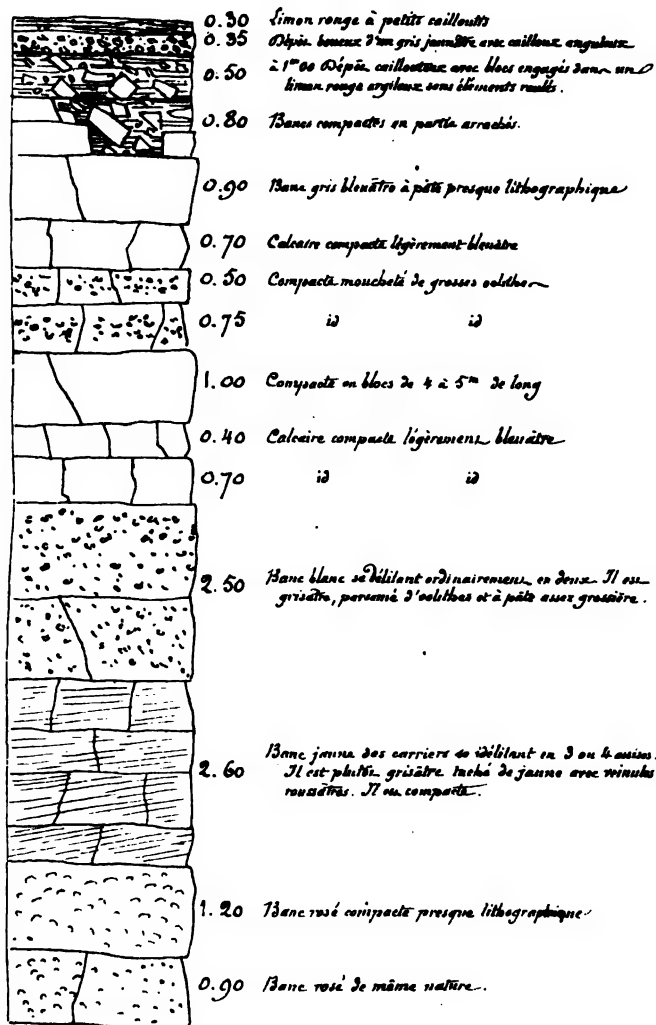 0.30 Limon rouge à petits cailloutis
0.35 Dépôt boueux d'un gris jaunâtre avec cailloux anguleux
0.50 à 1m00 Dépôt caillouteux avec blocs engagés dans un
limon rouge argileux sans éléments roulés.
0.80 Bancs compactes en partie arrachés.
0.90 Banc gris bleuâtre à pâte presque lithographique
0.70 Calcaire compacte légèrement bleuâtre
0.50 Compacte moucheté de grosses oolithes
0.75 id id
1.00 Compacte en blocs de 4 à 5m de long
0.40 Calcaire compacte légèrement bleuâtre
0.70 id id
2.50 Banc blanc se délitant ordinairement en deux. Il est
grisâtre, parsemé d'oolithes et à pâte assez grossière.
2.60 Banc jaune des carriers se délitant en 3 ou 4 assises.
Il est plutôt grisâtre taché de jaune avec veinules
roussâtres. Il est compacte.
1.20 Banc rosé compacte presque lithographique
0.90 Banc rosé de même nature.